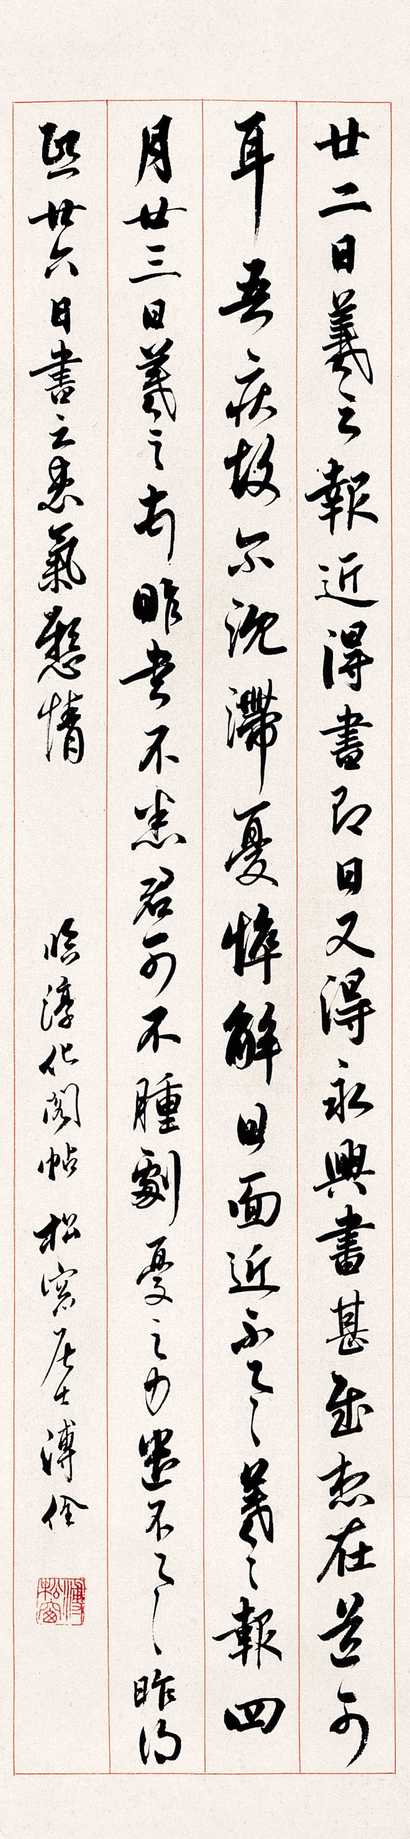 廿二日羲之報近得書即日又得永興書甚慰想在道可
耳吾疾故爾沈滯憂悴解日面近不具羲之報四
月廿三日羲之頓昨書不悉君可不腫劇憂之力遣不具昨得
熙廿六日書之愁氣懸情
臨淳化閣帖 松窗居士溥佺
溥松窗